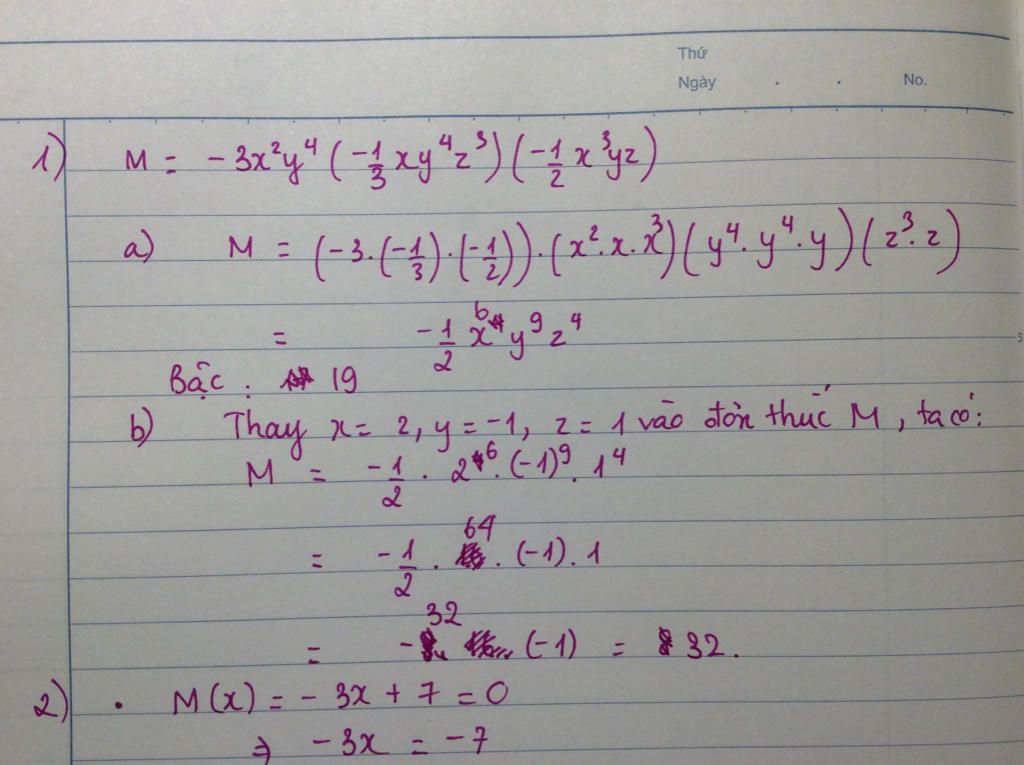 Thứ
Ngày . . No.
1) M = -3x²y⁴(-1/3 xy⁴z³)(-1/2 x³yz)
a) M = (-3.(-1/3).(-1/2)).(x².x.x³)(y⁴.y⁴.y)(z³.z)
= -1/2 x⁶y⁹z⁴
Bậc : 19
b) Thay x = 2, y = -1, z = 1 vào đơn thức M, ta có:
M = -1/2 . 2⁶.(-1)⁹.1⁴
= -1/2 . 64 . (-1) . 1
= -32 (-1) = 32.
2) . M(x) = -3x + 7 = 0
⇒ -3x = -7
5